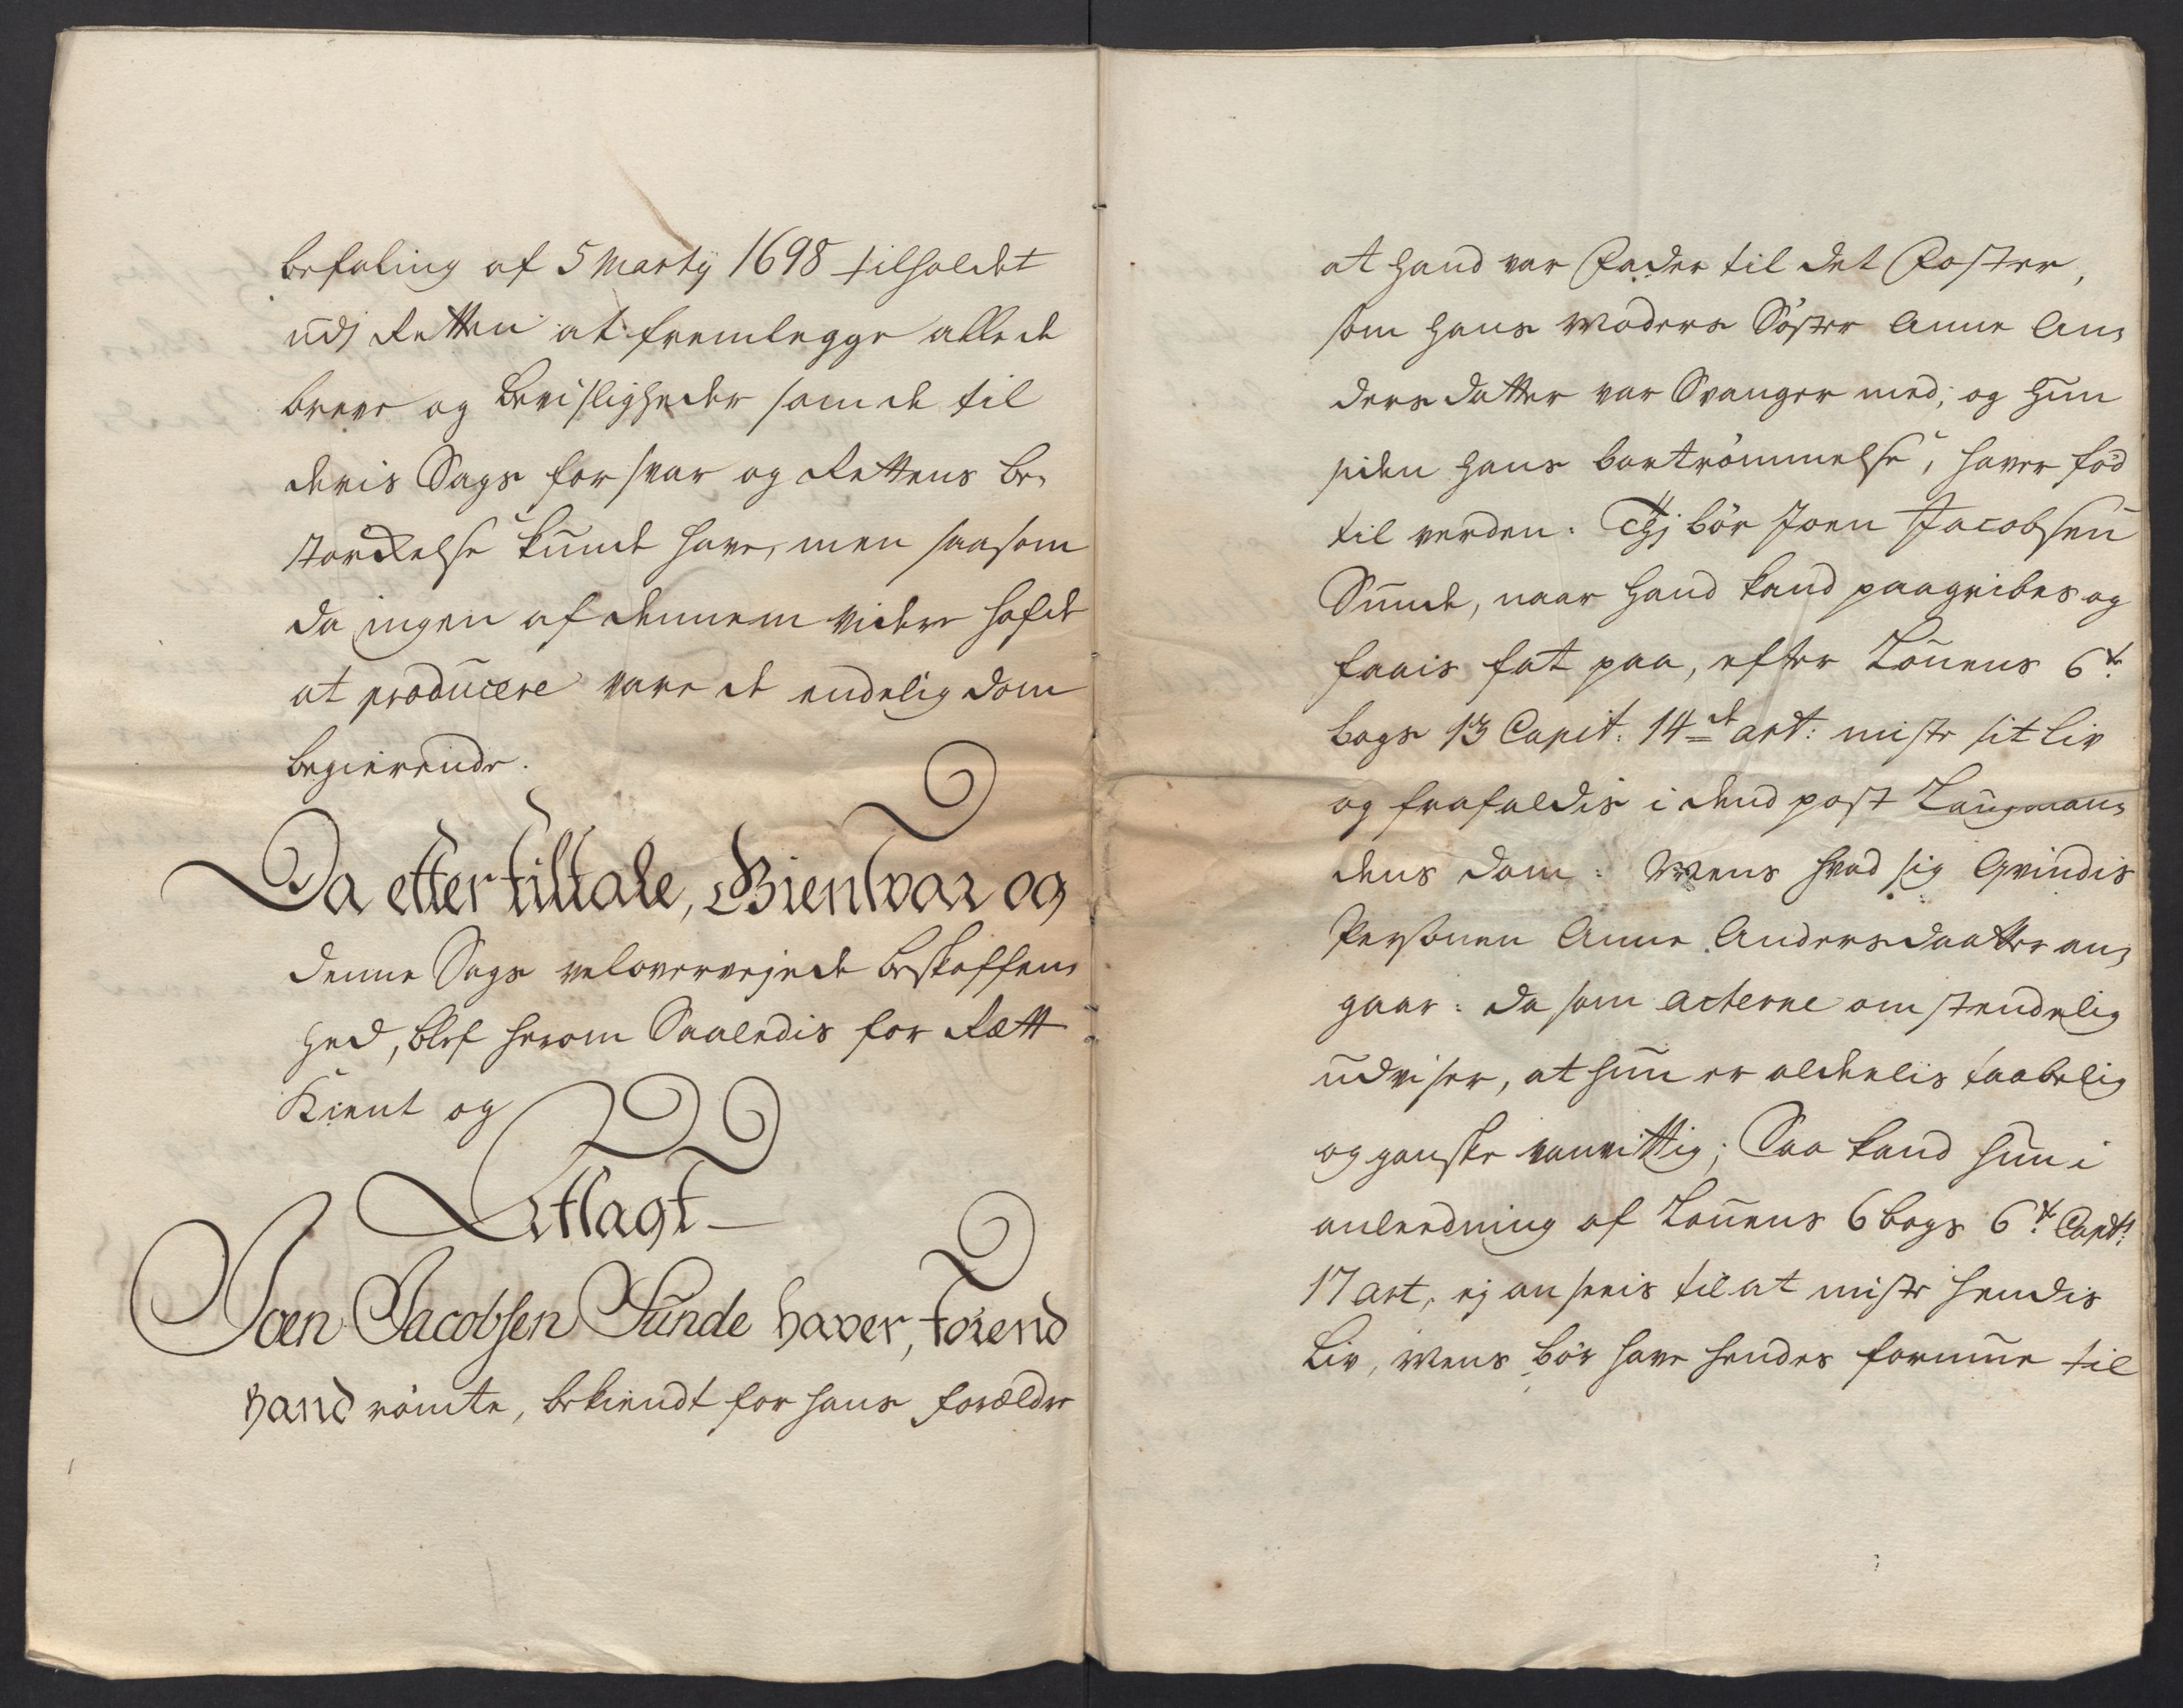 befaling af 5 Marty 1698 tilholdet
udj Retten at fremlegge alle de
breve og beviisligheder som de til
deris Sags forsvar og Rettens be-
stÿrckelse kunde have, men saasom
da ingen af dennem videre hafde
at producere vare de endelig dom
begierende.
Da efter tiltale, Giensvar og
denne Sags velovervejede beskaffen-
hed, blef herom Saaledis for Rætt
Kient og
Afsagt
Joen Jacobsen Sunde haver, förend
hand römte, bekiendt for hans forældre
at hand var Fader til det Foster,
som hans Moders Söster Anne An-
dersdatter var Svanger med, og hun
siden hans bortrömmelse, haver föd
til verden: Thj bör Joen Jacobsen
Sunde, naar hand kand paagribes og
faais fat paa, efter Louens 6te
bogs 13 Capit: 14de art: miste sit Liv
og frafaldis i dend post Laugman-
dens dom: Mens hvad sig Qvindis
Personen Anne Andersdaatter an-
gaar: da som acterne omstendelig
udviser, at hun er aldeelis taabelig
og ganske vanvittig; Saa kand hun i
anleedning af Louens 6 bogs 6te Capit:
17 art, ej ansees til at miste hendis
Liv, Mens bör have hendes formue til